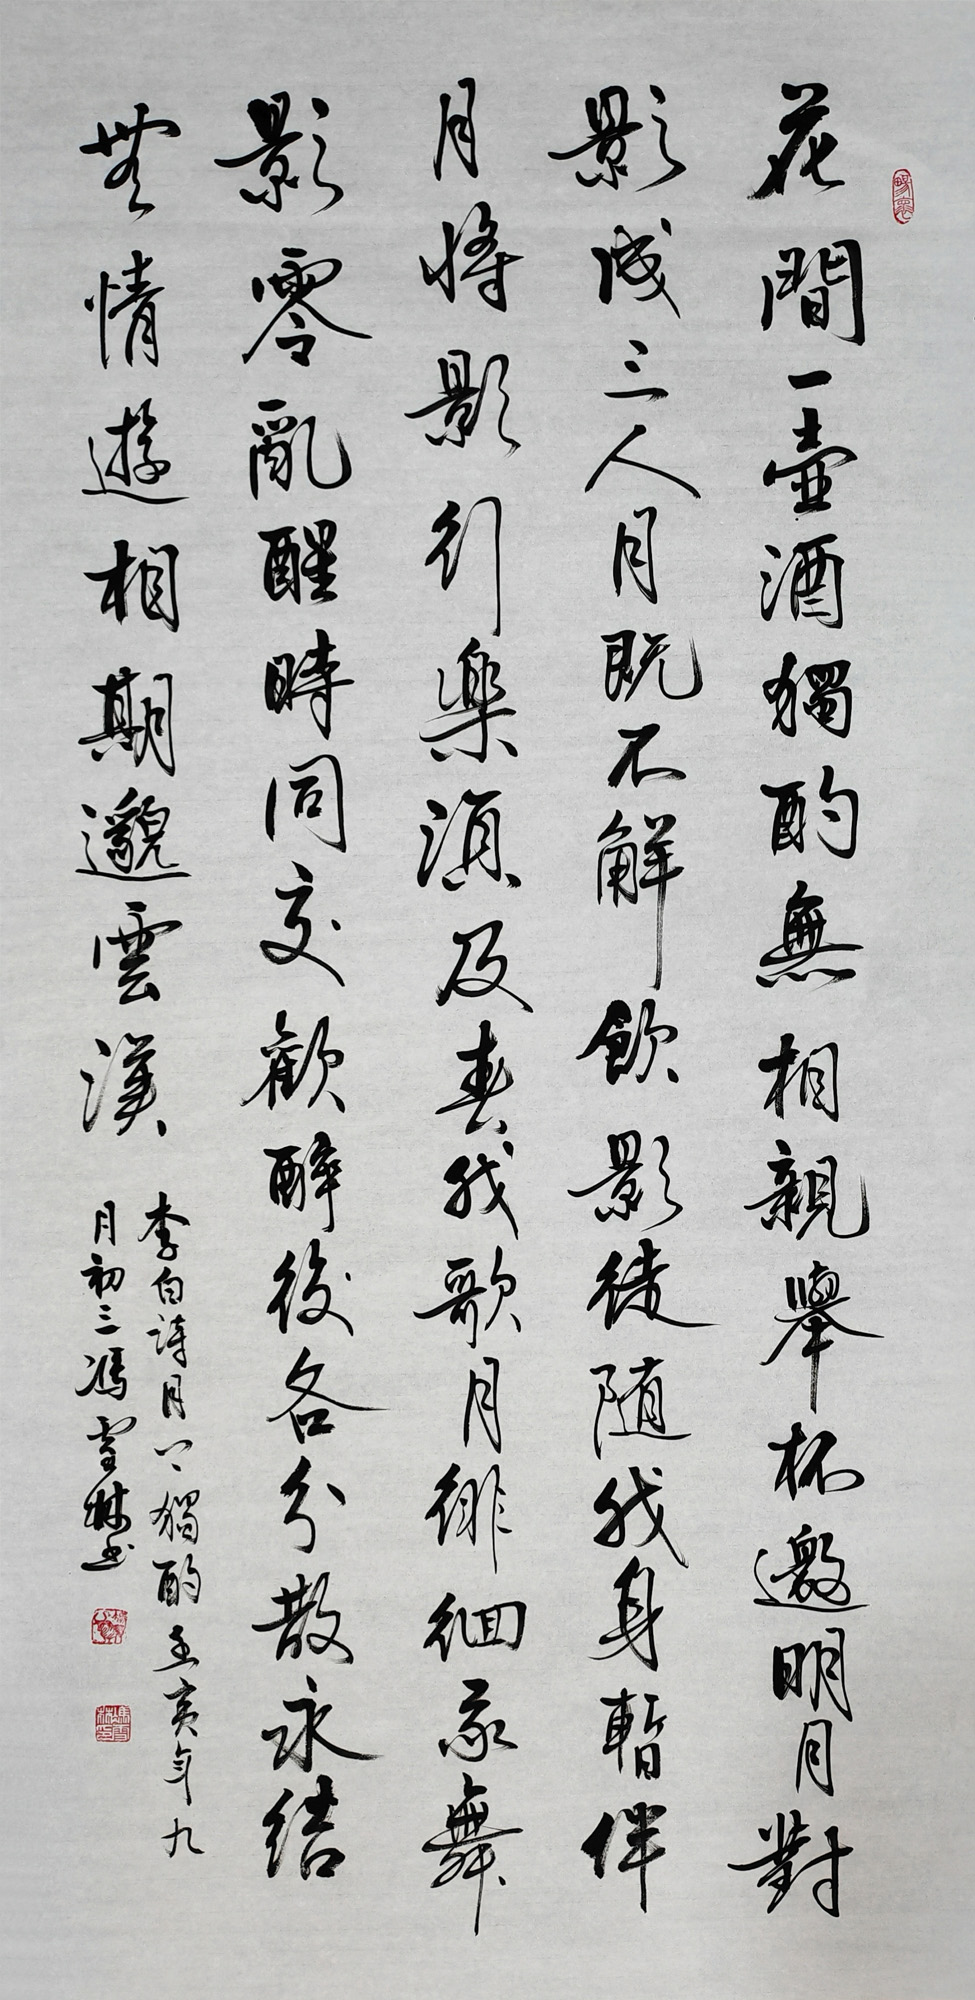 花間一壺酒獨酌無相親舉杯邀明月對
影成三人月既不解飲影徒随我身暫伴
月將影行樂須及春我歌月徘徊我舞
影零亂醒時同交歡醉後各分散永結
無情遊相期邈雲漢
李白詩月下獨酌 亥年九
月初三馮雪林书